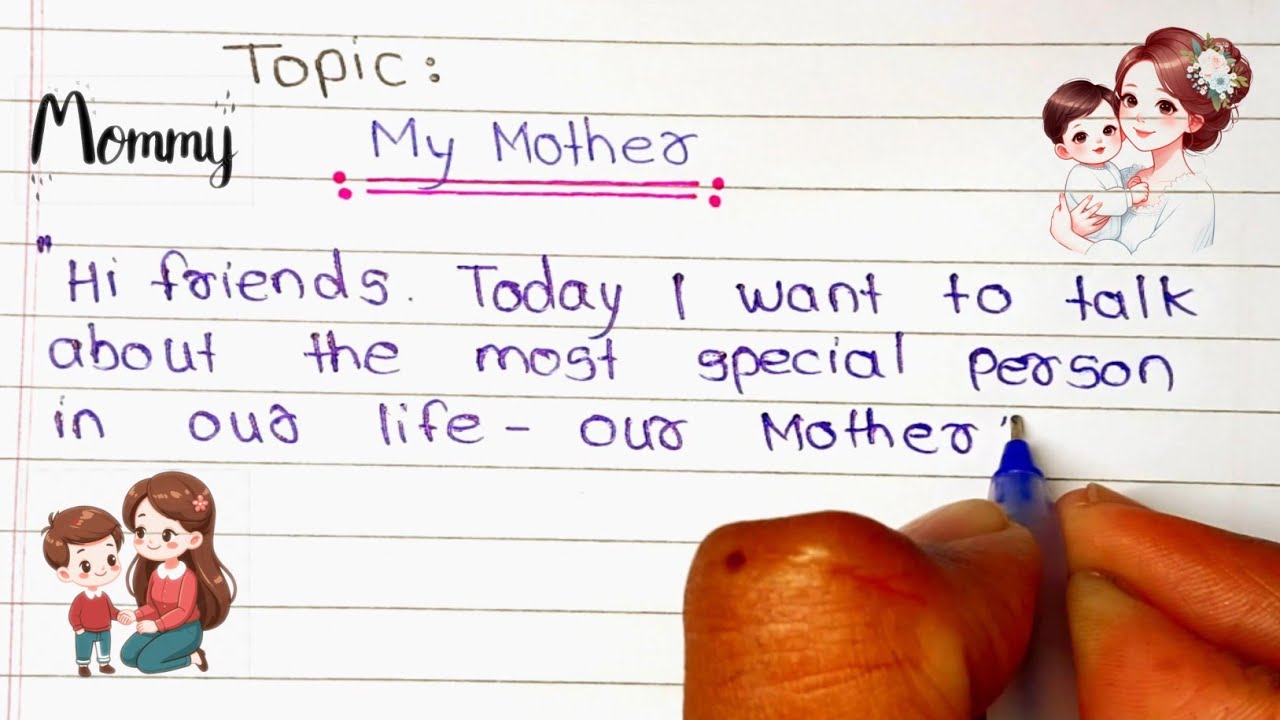 Topic:
Mommy
My Mother
"Hi friends. Today I want to talk
about the most special person
in our life - our Mother"